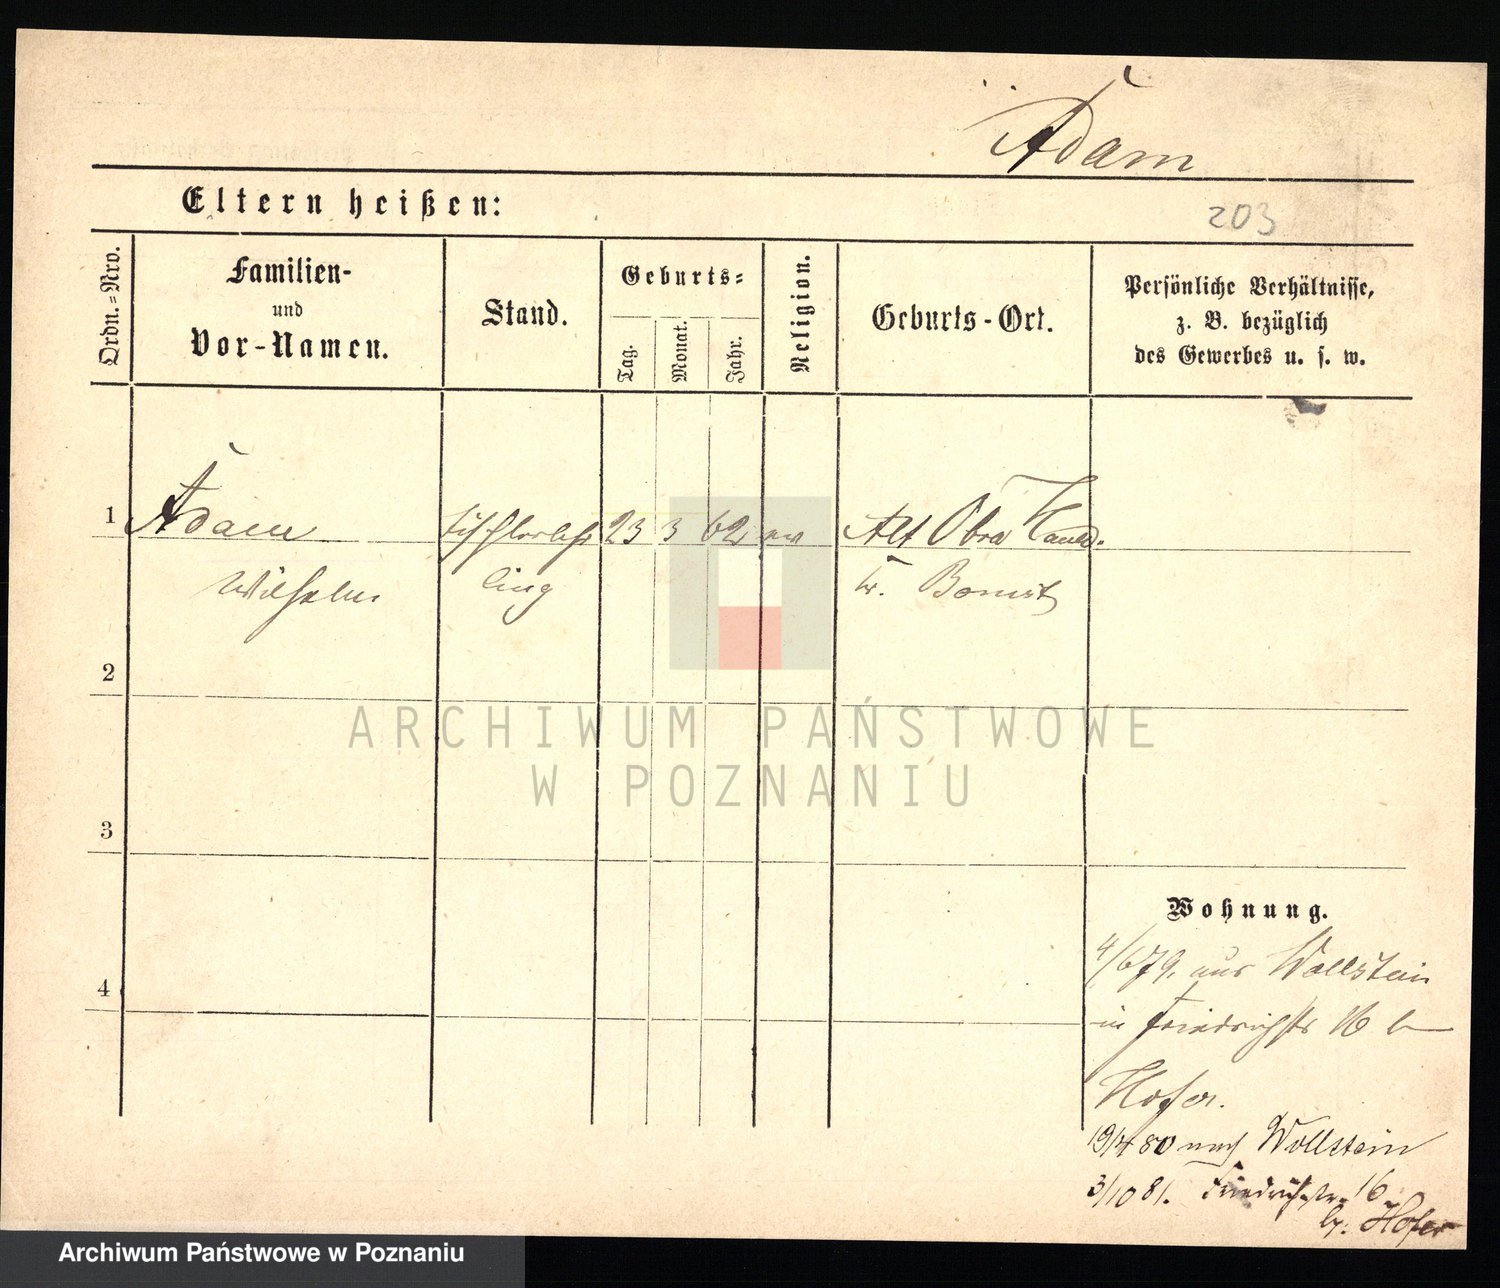 Adam
Eltern heißen:
203
Ordn.=Nro.
Familien-
und
Vor-Namen.
Stand.
Geburts=
Tag.
Monat.
Jahr.
Religion.
Geburts-Ort.
Persönliche Verhältnisse,
z. B. bezüglich
des Gewerbes u. s. w.
1 Adam Tischlerlehr 23 3 62 ev Alt Obra Hauld.
Wilhelm ling Kr. Bomst
2
ARCHIWUM PAŃSTWOWE
W POZNANIU
3
Wohnung.
4/6 79. aus Wollstein
4
in Friedrichstr 16 b
Hofer.
80 nach Wollstein
3/10 81. Friedrichstr. 16
by. Hofer
Archiwum Państwowe w Poznaniu